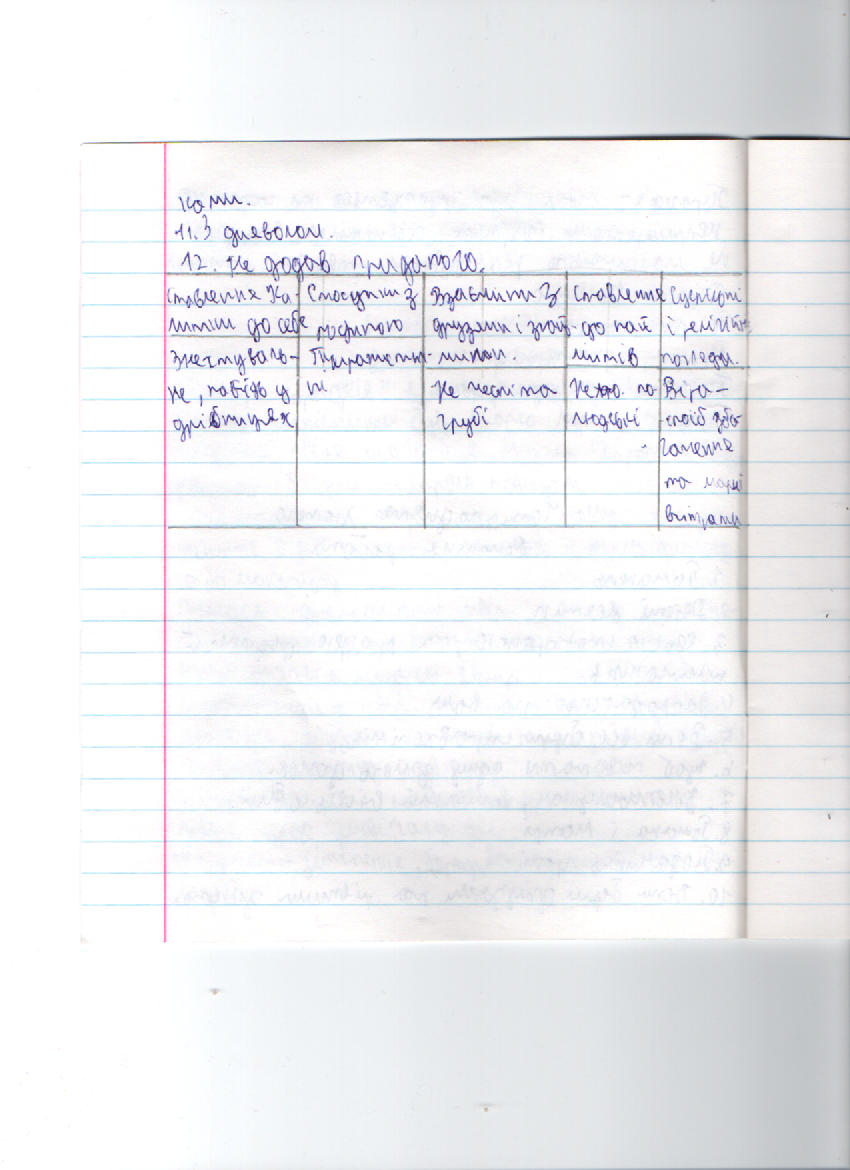 ками.
11. З дияволом.
12. Не додав приданого.
Ставлення Ка-
литки до себе
Стосунки з
родиною
Взаємини з
друзями і знай-
мими.
Ставлення
до най
митів
Суспільні
і релігійні
погляди.
Знехтуваль-
не, навіть у
дрібницях
Не чесні та
грубі
по
людські
Віра –
спосіб зба
гачення
та марні
витрати